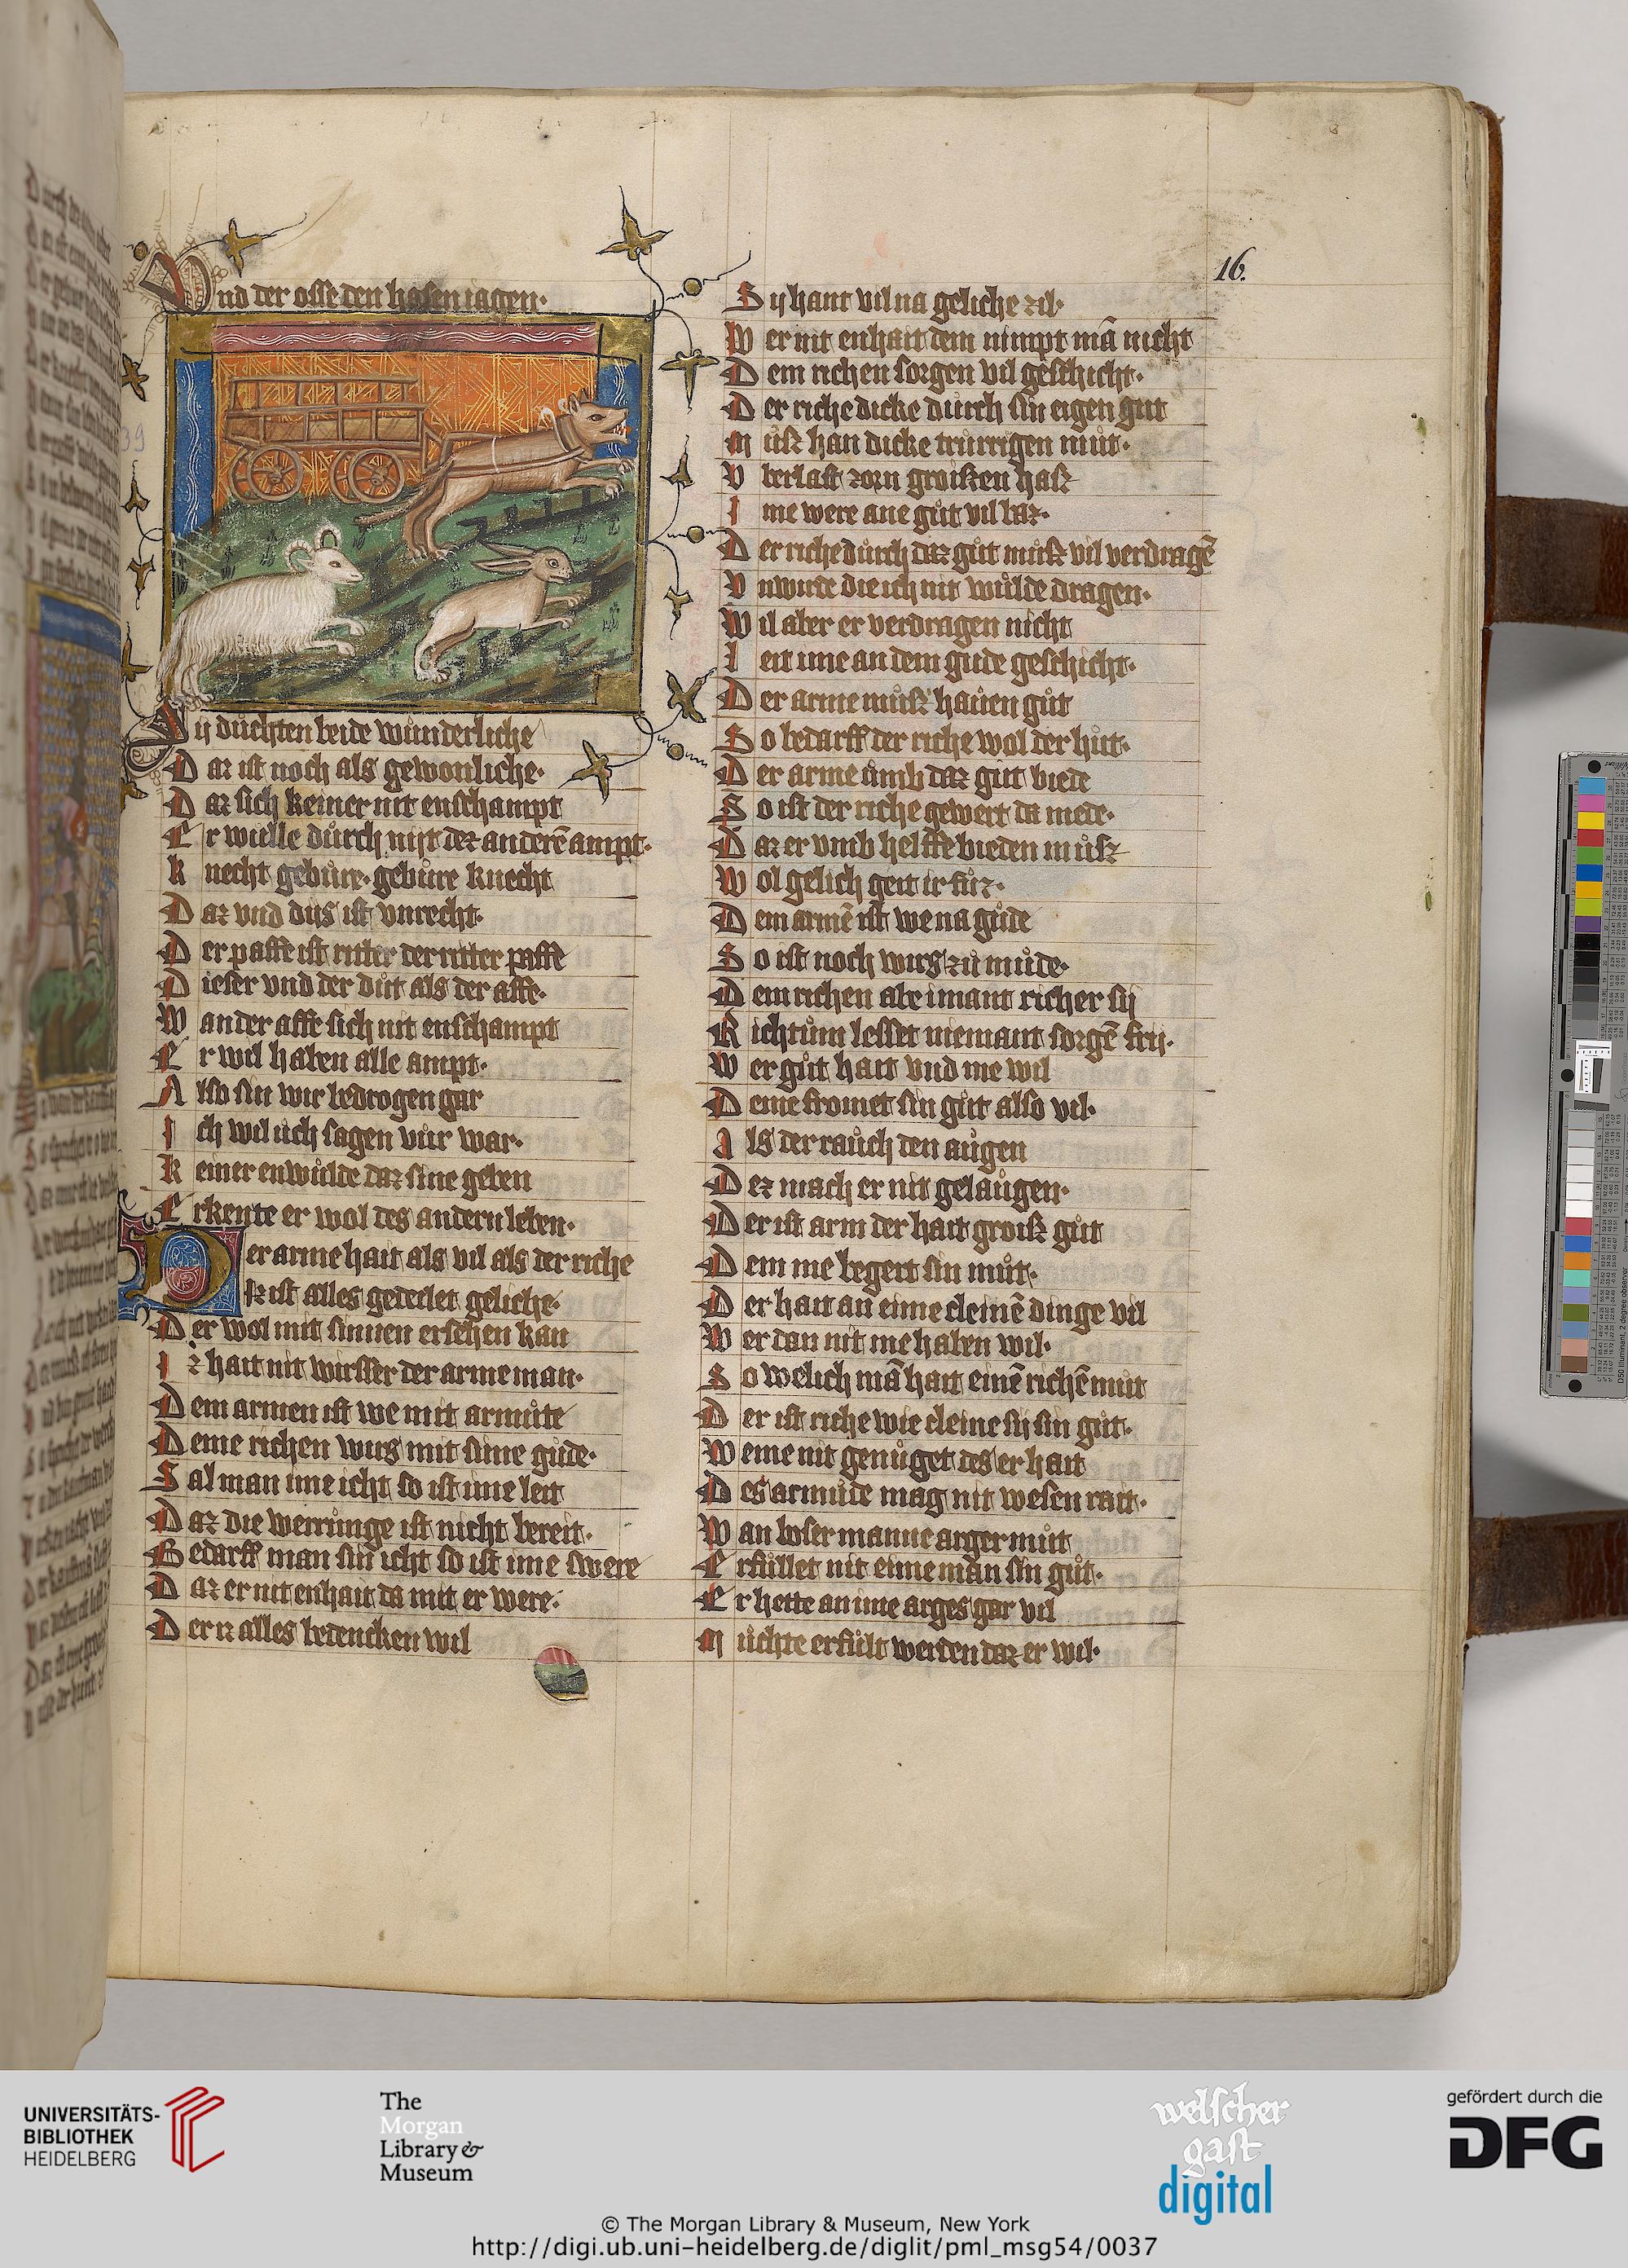 16.
Vnd der osse den hasen iagen·
Sij duͤchten beide wuͤnderliche
Daz ist noch als gewonliche·
Daz sich keiner nit enschampt
Er wulle duͤrch nist dez anderē ampt·
Knecht gebuͤre· gebuͤre knecht
Daz vnd dus ist vnrecht·
Der paffe ist ritter der ritter paffe
Dieser vnd der duͤt als der affe·
Wan der affe sich nit enschampt
Er wil haben alle ampt·
Also sin wir bedrogen gar
Ich wil uch sagen vuͤr war·
Keiner enwuͤlde daz sine geben
Erkente er wol des andern leben·
Der arme hait als vil als der riche
Iz ist alles gedeilet geliche·
Der wol mit sinnen ersehen kan
Iz hait nit wirsser der arme man·
Dem armen ist we mit armuͤte
Deme richen wurs mit sime guͤde·
Sal man ime icht so ist ime leit
Daz die werrunge ist nicht bereit·
Bedarff man sin icht so ist ime swere
Daz er nit enhait da mit er were·
Der iz alles bedencken wil
Sij hant vil na geliche zil·
Wer nit enhait dem nimpt mā nicht
Dem richen sorgen vil geschicht·
Der riche dicke durch sin eigen gut
Muͤsz han dicke trurrigen muͤt·
Vberlast zorn groiszen hasz
Ime were ane guͤt vil baz·
Der riche duͤrch daz guͤt muͤsz vil verdragē
Vnwirde die ich nit wuͤlde dragen·
Wil aber er verdragen nicht
Leit ime an dem gude geschicht·
Der arme muͤsz hauen guͤt
So bedarff der riche wol der huͤt·
Der arme uͤmb daz guͤt biede
So ist der riche gewert da mede·
Daz er vmb helffe bieden muͤsz
Wol gelich geit ir fuͤz·
Dem armē ist we na guͤde
So ist noch wurs zuͤ muͤde·
Dem richen abe imant richer sij
Richtuͤm lesset niemant sorgē frij·
Wer guͤt hait vnd me wil
Deme fromet sin guͤt also vil·
Als der rauͤch den auͤgen
Dez mach er nit gelaugen·
Der ist arm der hait groisz guͤt
Dem me begert sin muͤt·
Der hait an einne cleinē dinge vil
Wer dan nit me haben wil·
So welich mā hait einē richē muͤt
Der ist riche wie cleine sij sin guͤt·
Weme nit genuͤget des er hait
Des armuͤde mag nit wesen rait·
Wan boser manne arger muͤt
Erfuͤllet nit einne man sin guͤt·
Er hette an ime arges gar vil
Muͤchte erfuͤlt werden daz er wil·
UNIVERSITÄTS-
BIBLIOTHEK
HEIDELBERG
The
Morgan
Library &
Museum
welscher
gast
digital
gefördert durch die
DFG
© The Morgan Library & Museum, New York
http://digi.ub.uni-heidelberg.de/diglit/pml_msg54/0037